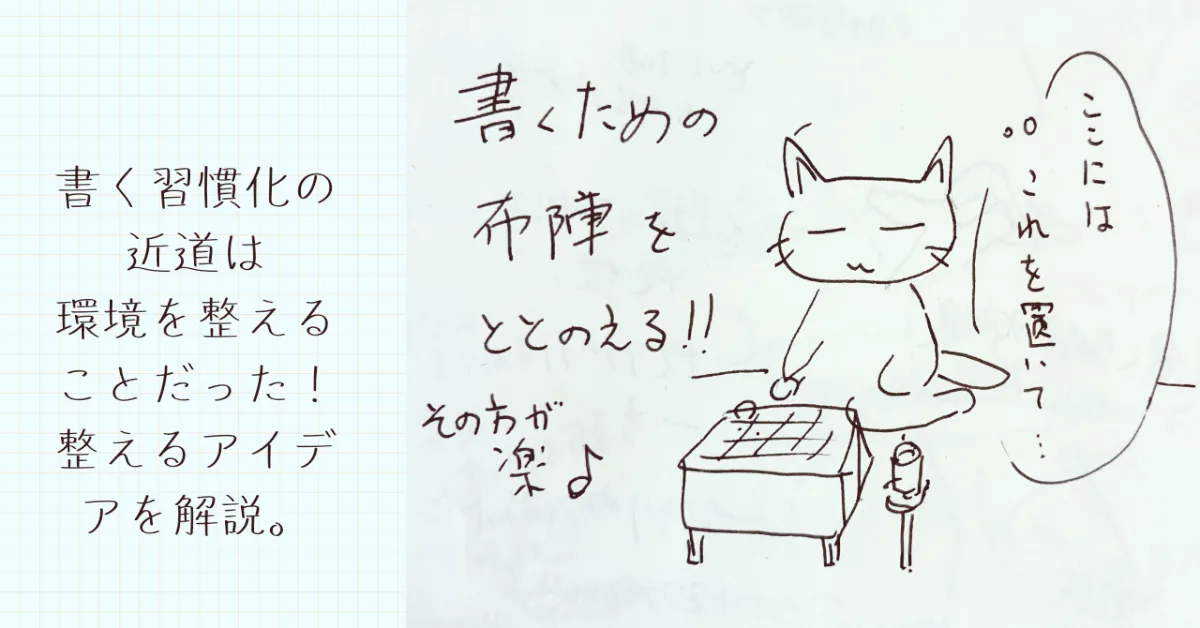 書く習慣化の
近道は
環境を整える
ことだった！
整えるアイデ
アを解説。
書くための
布陣を
ととのえる!!
その方が
楽♪
ここには
これを置いて…